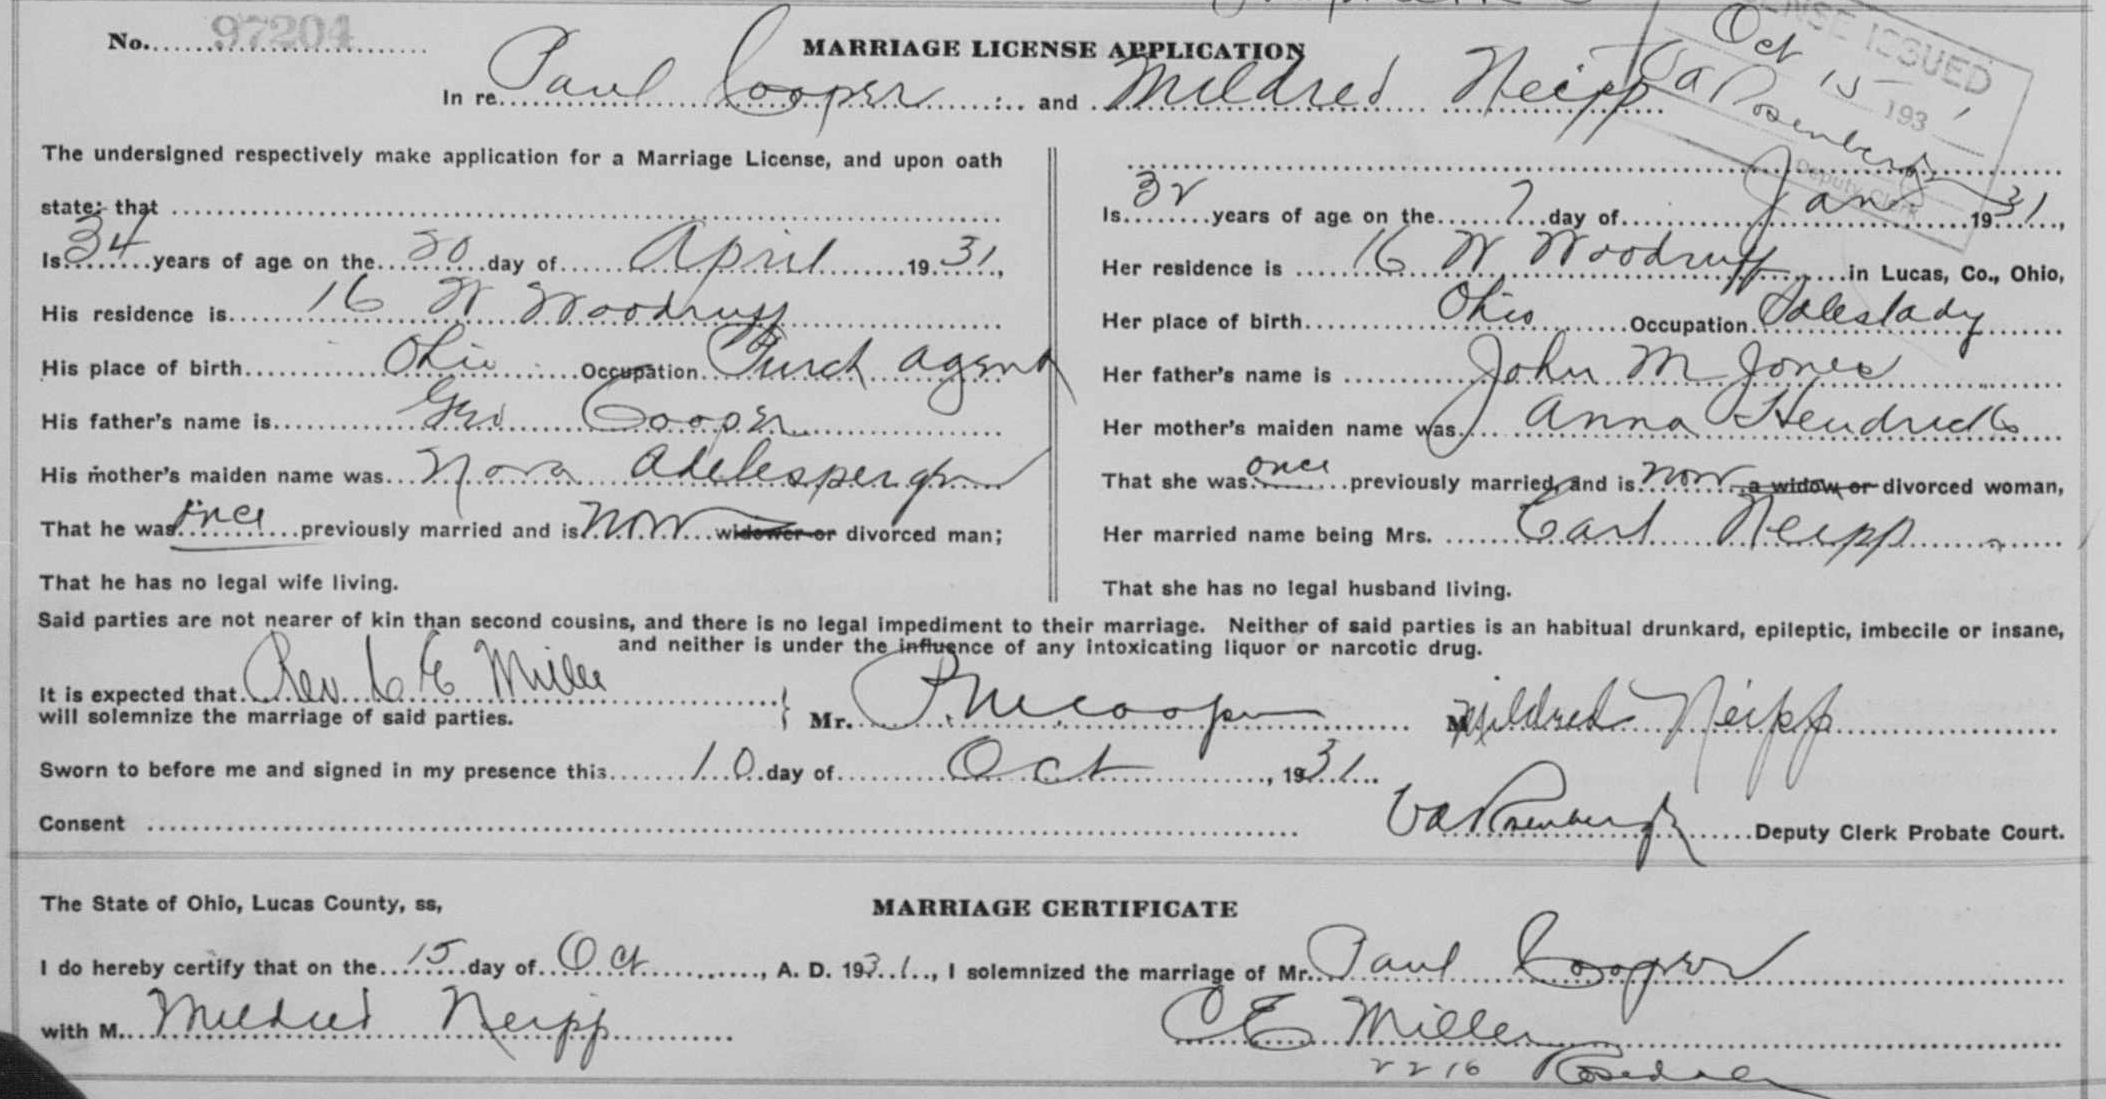 No. 97204
MARRIAGE LICENSE APPLICATION
In re Paul Cooper and Mildred Neipp
LICENSE ISSUED
Oct 15 1931
Deputy Clerk
The undersigned respectively make application for a Marriage License, and upon oath
state; that
Is 34 years of age on the 20 day of April 1931,
His residence is 16 W Woodruff
His place of birth Ohio Occupation Purch agent
His father's name is Geo Cooper
His mother's maiden name was Nora Adelesperger
That he was once previously married and is now widower or divorced man;
That he has no legal wife living.
Is 32 years of age on the 7 day of Jan 1931,
Her residence is 16 W Woodruff in Lucas, Co., Ohio,
Her place of birth Ohio Occupation Saleslady
Her father's name is John M Jones
Her mother's maiden name was Anna Hendricks
That she was once previously married, and is now a widow or divorced woman,
Her married name being Mrs. Carl Neipp
That she has no legal husband living.
Said parties are not nearer of kin than second cousins, and there is no legal impediment to their marriage. Neither of said parties is an habitual drunkard, epileptic, imbecile or insane,
and neither is under the influence of any intoxicating liquor or narcotic drug.
It is expected that Rev C E Miller
will solemnize the marriage of said parties.
Mr. P M Cooper Mildred Neipp
Sworn to before me and signed in my presence this 10 day of Oct, 1931
Consent
Rosenberg Deputy Clerk Probate Court.
The State of Ohio, Lucas County, ss,
MARRIAGE CERTIFICATE
I do hereby certify that on the 15 day of Oct, A. D. 1931, I solemnized the marriage of Mr. Paul Cooper
with M. Mildred Neipp
C E Miller
2216